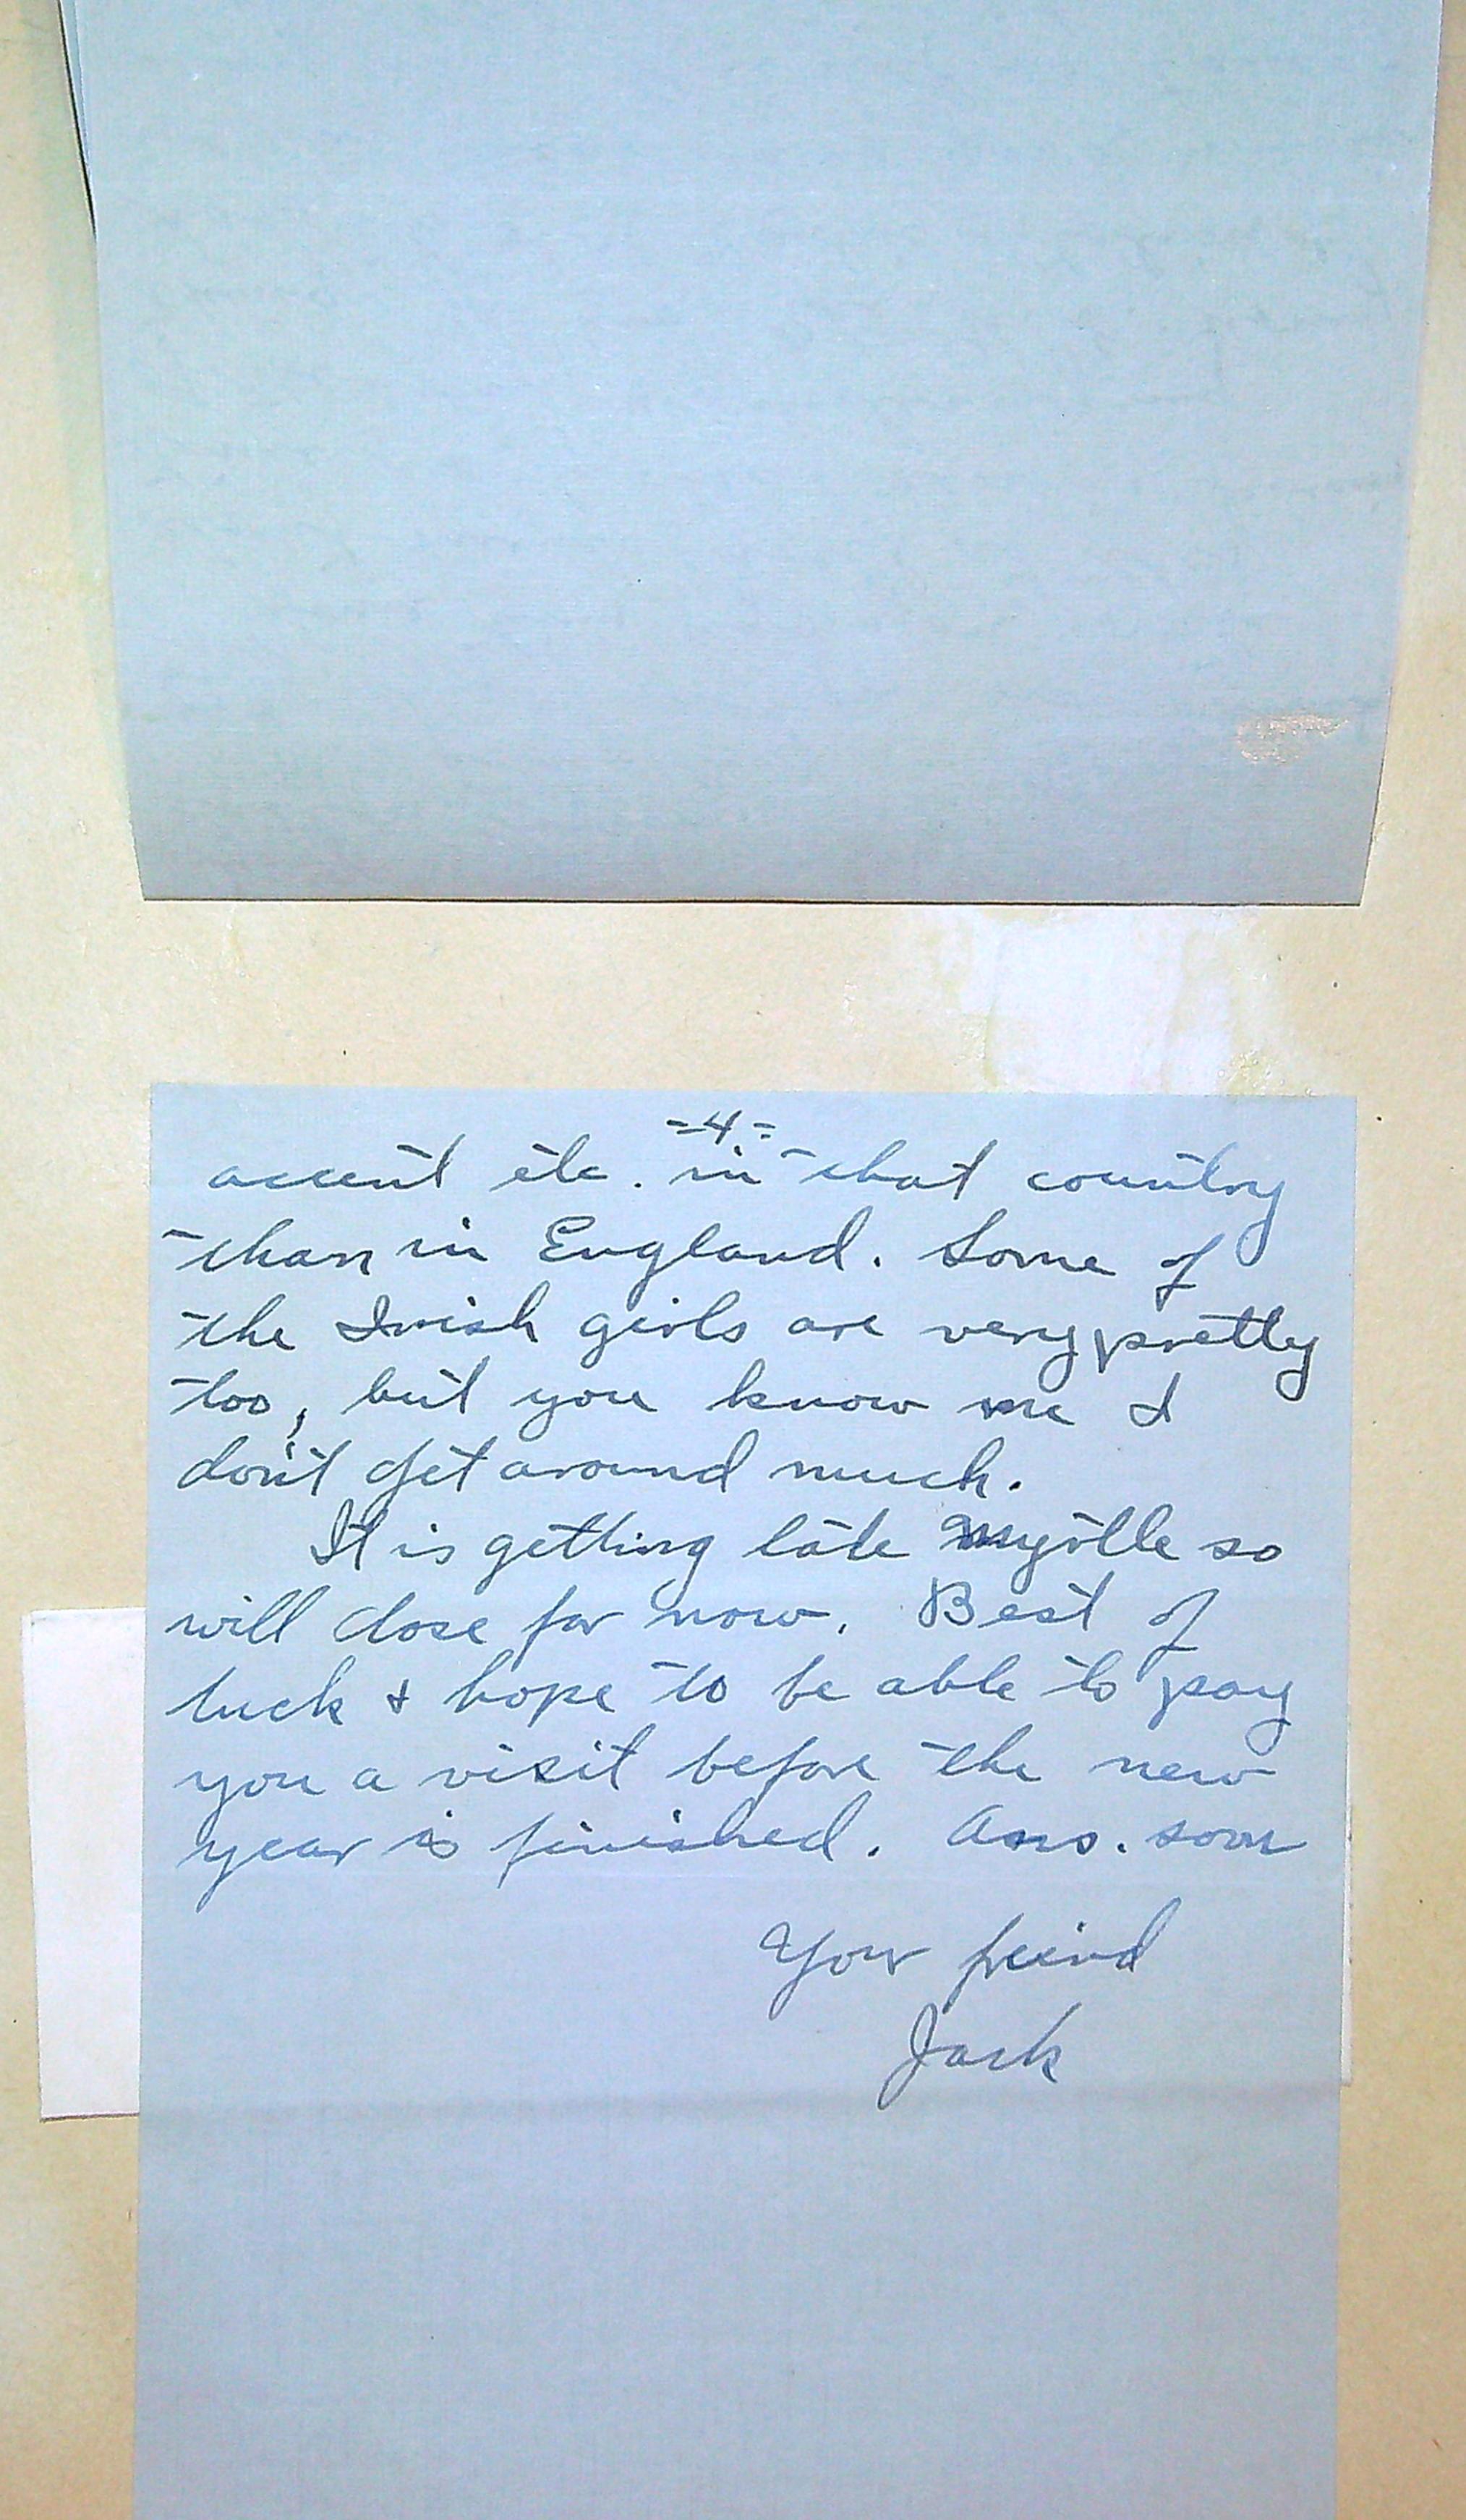 -4-
accent etc. in that country
than in England. Some of
the Irish girls are very pretty
too, but you know me I
don't get around much.
It is getting late Myrtle so
will close for now. Best of
luck & hope to be able to pay
you a visit before the new
year is finished. Ans. soon
Your freind
Jack